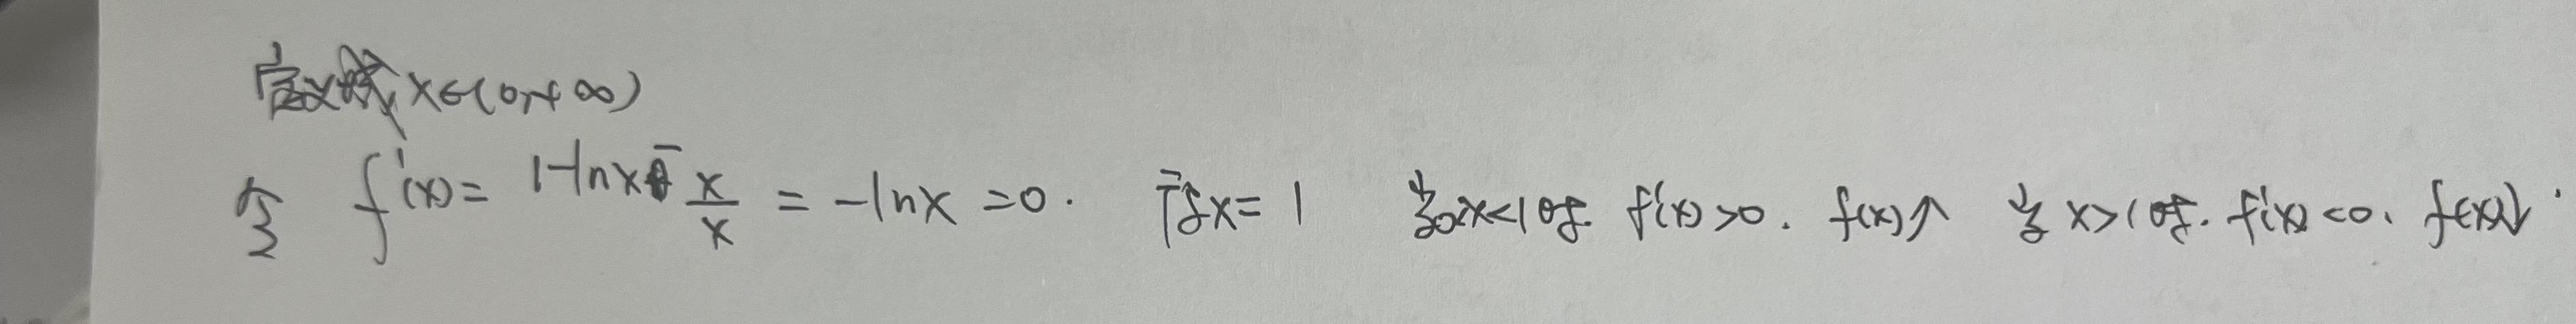 定义域 x∈(0,+∞)
令 f'(x)= 1-lnx - x/x = -lnx =0. 得x=1 当0<x<1时. f'(x)>0. f(x)↑ 当x>1时. f'(x)<0. f(x)↓.